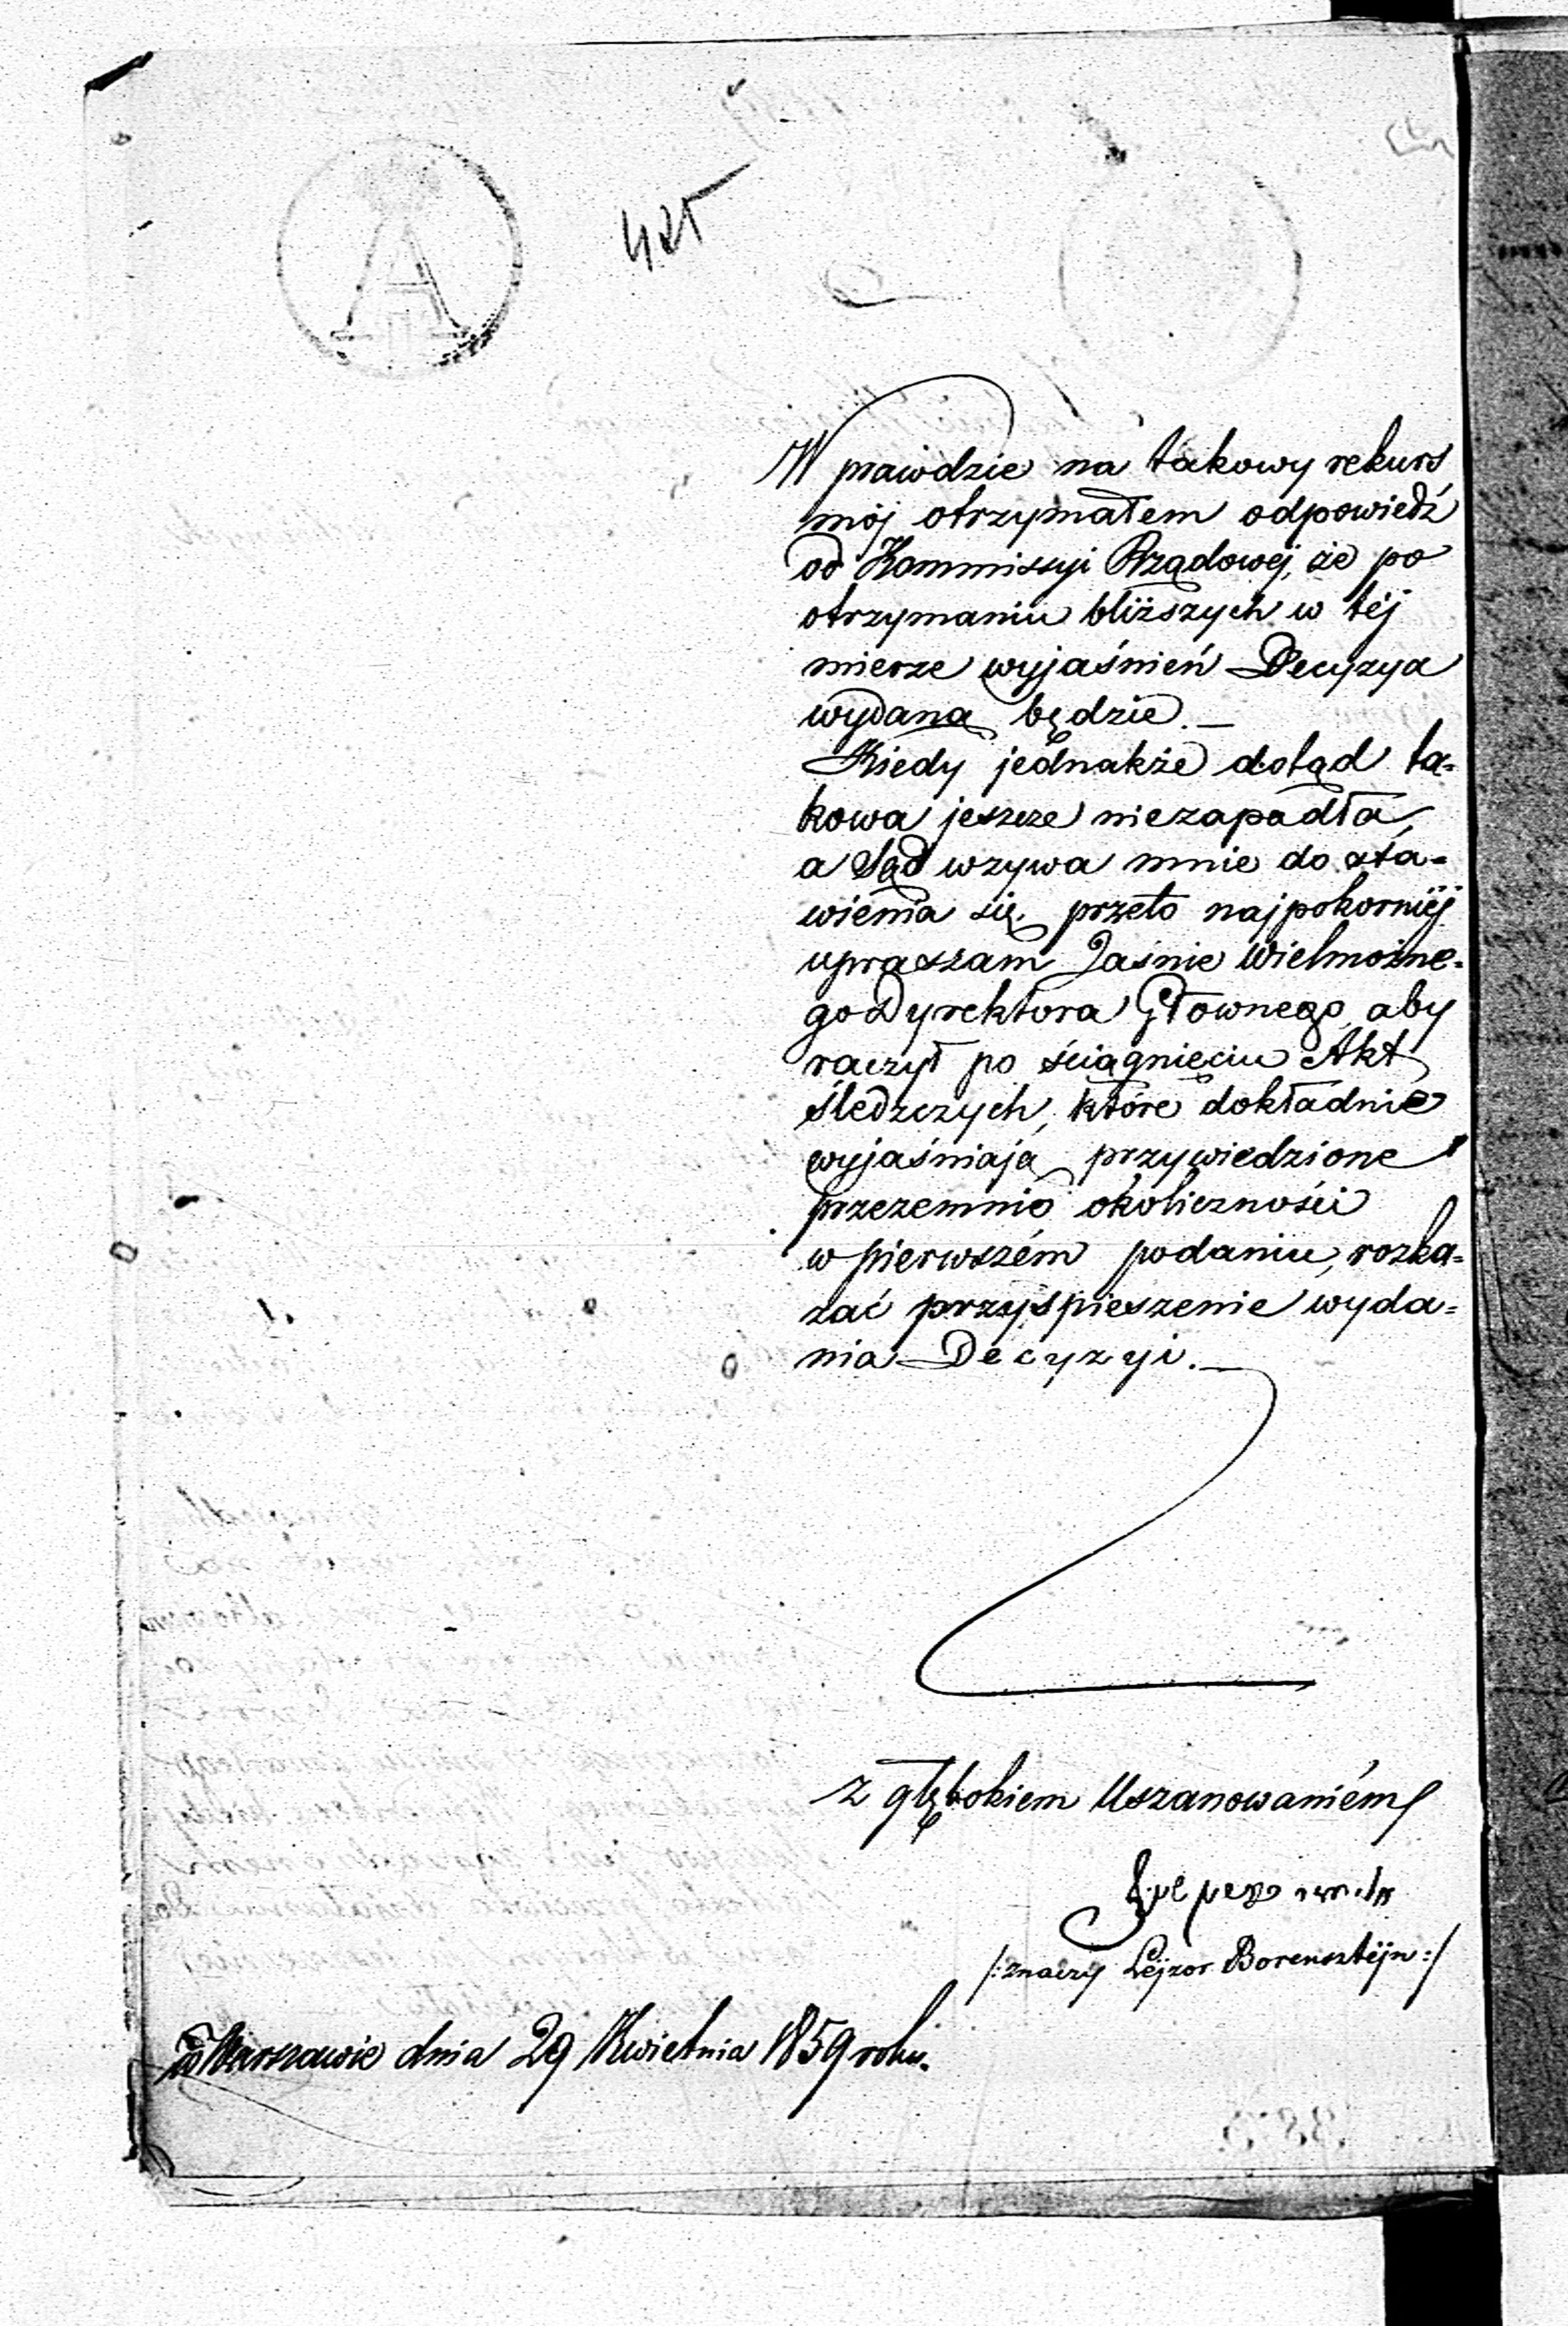 425
W prawdzie na takowy rekurs
mój otrzymałem odpowiedź
od Kommissyi Rządowéj, że po
otrzymaniu bliższych w téj
mierze wyjaśnień Decyzya
wydaną będzie. —
Kiedy jednakże dotąd ta-
kowa jeszcze niezapadła,
a Sąd wzywa mnie do sta-
wienia się, przeto najpokorniéj
upraszam Jaśnie Wielmożne-
go Dyrektora Głownego, aby
raczył po ściągnięciu Akt
śledzczych, które dokładnie
wyjaśniają przywiedzione
przezemnie okoliczności
w pierwszém podaniu, rozka-
zać przyśpieszenie wyda-
nia Decyzyi. —
Z głębokiem Uszanowaniém
/: znaczy Lejzor Borensztejn :/
w Warszawie dnia 29 Kwietnia 1859 roku.